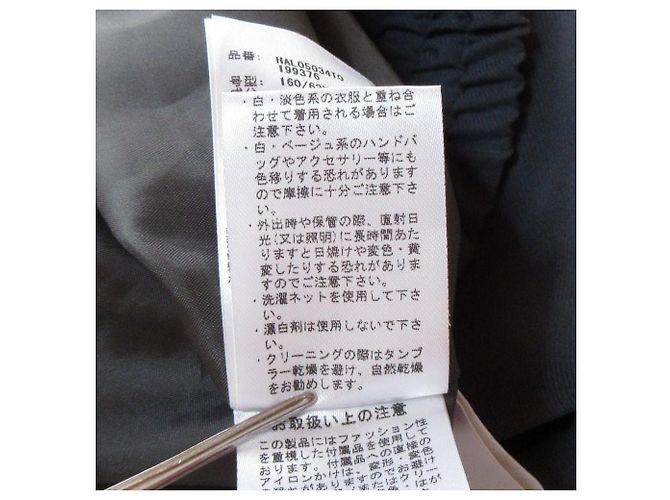 品番: HAL0503410
199376
号型: 160/62
・白・淡色系の衣服と重ね合
わせて着用される場合はご
注意下さい。
・白・ベージュ系のハンドバ
ッグやアクセサリー等にも
色移りする恐れがあります
ので摩擦に十分ご注意下さ
い。
・外出時や保管の際、直射日
光(又は照明)に長時間あた
りますと日焼けや変色・黄
変したりする恐れがありま
すのでご注意下さい。
・洗濯ネットを使用して下さ
い。
・漂白剤は使用しないで下さ
い。
・クリーニングの際はタンブ
ラー乾燥を避け、自然乾燥
をお勧めします。
お取扱い上の注意
この製品にはファッション性
を重視した付属品を使用して
おります。付属品への直接の
アイロンかけは、変形・変色